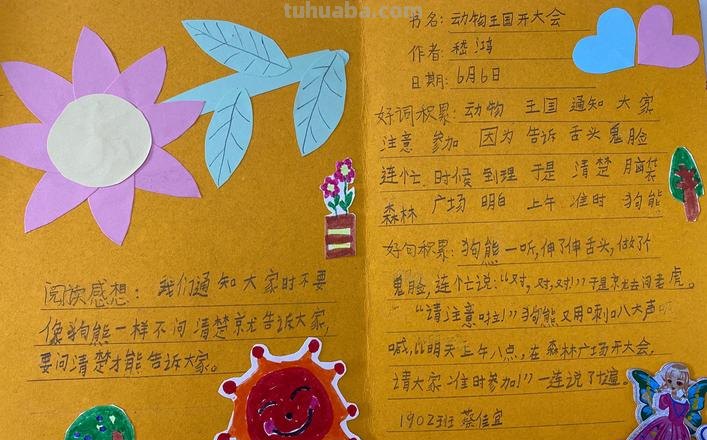 tuhuaba.com
书名：动物王国开大会
作者：嵇鸿
日期：6月6日
好词积累：动物 王国 通知 大家
注意 参加 因为 告诉 舌头 鬼脸
连忙 时候 到理 于是 清楚 脑袋
森林 广场 明白 上午 准时 狗熊
好句积累：狗熊一听，伸了伸舌头，做了个
鬼脸，连忙说：“对，对，对！”于是京尤去问老虎。
“请注意啦！”狗熊又用喇叭大声
喊，“明天上午八点，在森林广场开大会，
请大家准时参加！”一连说了十遍。
1902班 蔡佳宜
阅读感想：我们通知大家时不要
像狗熊一样不问清楚京尤告诉大家，
要问清楚才能告诉大家。